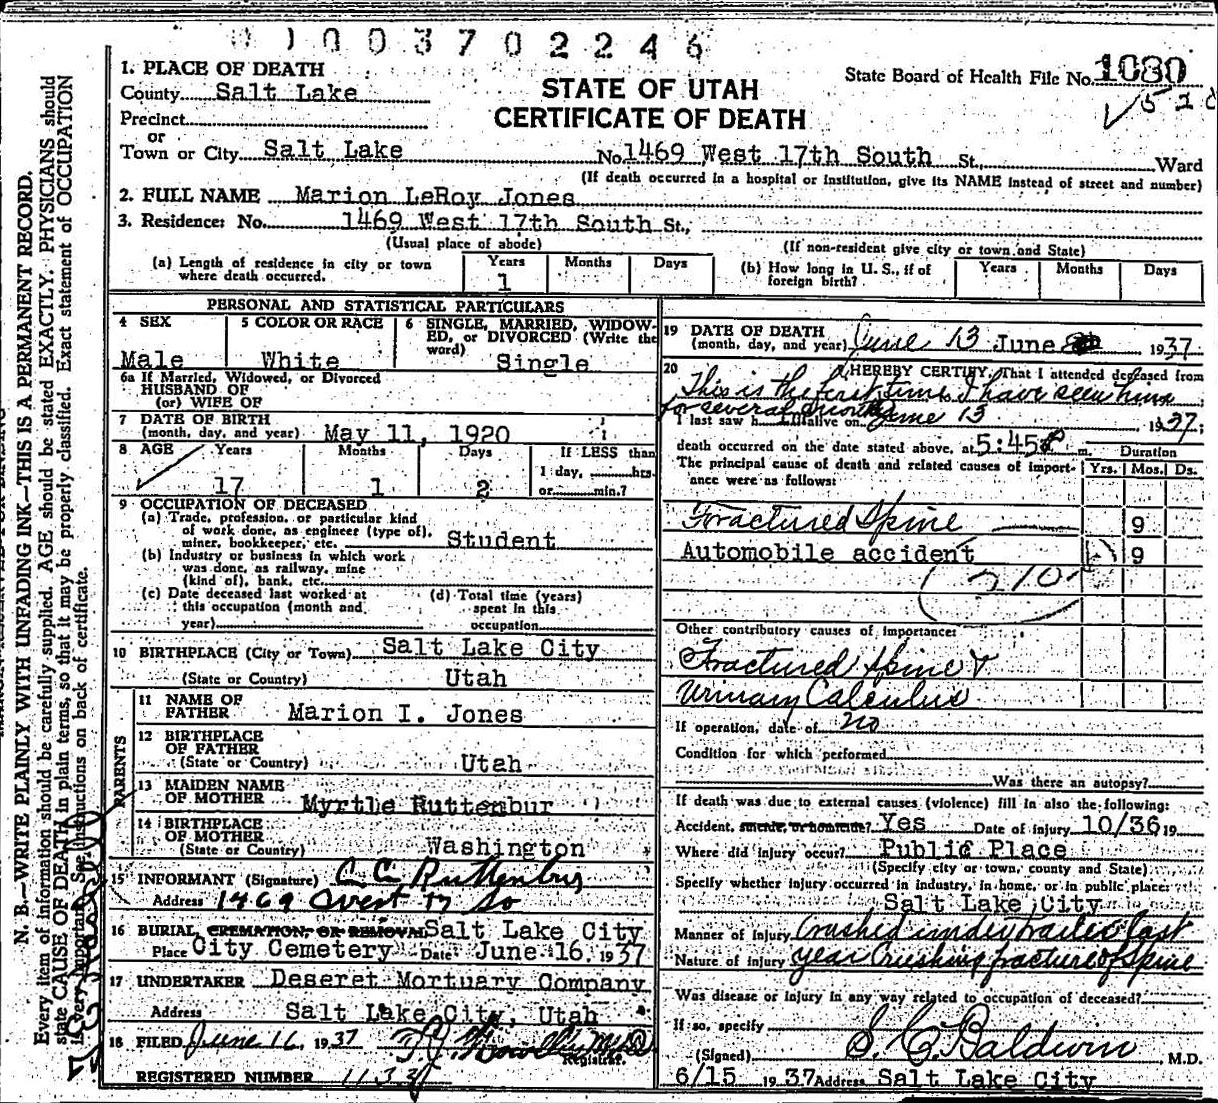 0 1 0 0 3 7 0 2 2 4 6
1. PLACE OF DEATH
County Salt Lake
Precinct
or
Town or City Salt Lake No. 1469 West 17th South St., Ward
STATE OF UTAH
CERTIFICATE OF DEATH
State Board of Health File No. 1080
(If death occurred in a hospital or institution, give its NAME instead of street and number)
2. FULL NAME Marion LeRoy Jones
3. Residence: No. 1469 West 17th South St.,
(Usual place of abode) (If non-resident give city or town and State)
(a) Length of residence in city or town where death occurred. Years 1 Months Days
(b) How long in U. S., if of foreign birth? Years Months Days
PERSONAL AND STATISTICAL PARTICULARS
4 SEX Male
5 COLOR OR RACE White
6 SINGLE, MARRIED, WIDOWED, or DIVORCED (Write the word) Single
6a If Married, Widowed, or Divorced
HUSBAND OF
(or) WIFE OF
7 DATE OF BIRTH
(month, day, and year) May 11, 1920
8 AGE Years Months Days If LESS than
1 day, hrs.
17 1 2 or min.?
9 OCCUPATION OF DECEASED
(a) Trade, profession, or particular kind
of work done, as engineer (type of),
miner, bookkeeper, etc. Student
(b) Industry or business in which work
was done, as railway, mine
(kind of), bank, etc.
(c) Date deceased last worked at
this occupation (month and
year)
(d) Total time (years)
spent in this
occupation
10 BIRTHPLACE (City or Town) Salt Lake City
(State or Country) Utah
PARENTS
11 NAME OF
FATHER Marion I. Jones
12 BIRTHPLACE
OF FATHER
(State or Country) Utah
13 MAIDEN NAME
OF MOTHER Myrtle Ruttenbur
14 BIRTHPLACE
OF MOTHER
(State or Country) Washington
15 INFORMANT (Signature) C C Ruttenbur
Address 1469 West 17 So
16 BURIAL, CREMATION, OR REMOVAL Salt Lake City
Place City Cemetery Date June 16, 1937
17 UNDERTAKER Deseret Mortuary Company
Address Salt Lake City, Utah
18 FILED June 16, 1937
Registrar.
REGISTERED NUMBER
19 DATE OF DEATH
(month, day, and year) June 13 June 1937
20 I HEREBY CERTIFY, That I attended deceased from
This is the first time I have seen him
for several months June 13
I last saw h im alive on 1937;
death occurred on the date stated above, at 5:45 P m.
The principal cause of death and related causes of importance were as follows:
Duration
Yrs. Mos. Ds.
Fractured Spine 9
Automobile accident 9
210
Other contributory causes of importance:
Fractured Spine &
Urinary Calculus
If operation, date of no
Condition for which performed
Was there an autopsy?
If death was due to external causes (violence) fill in also the following:
Accident, suicide, or homicide? Yes Date of injury 10/36 19
Where did injury occur? Public Place
(Specify city or town, county and State)
Specify whether injury occurred in industry, in home, or in public place:
Salt Lake City
Manner of Injury Crushed under trailer last
Nature of injury year Crushing fracture of Spine
Was disease or injury in any way related to occupation of deceased?
If so, specify
(Signed) S. C. Baldwin M.D.
6/15 1937 Address Salt Lake City
N. B.—WRITE PLAINLY WITH UNFADING INK—THIS IS A PERMANENT RECORD.
Every item of information should be carefully supplied. AGE should be stated EXACTLY. PHYSICIANS should
state CAUSE OF DEATH in plain terms, so that it may be properly classified. Exact statement of OCCUPATION
is very important. See instructions on back of certificate.